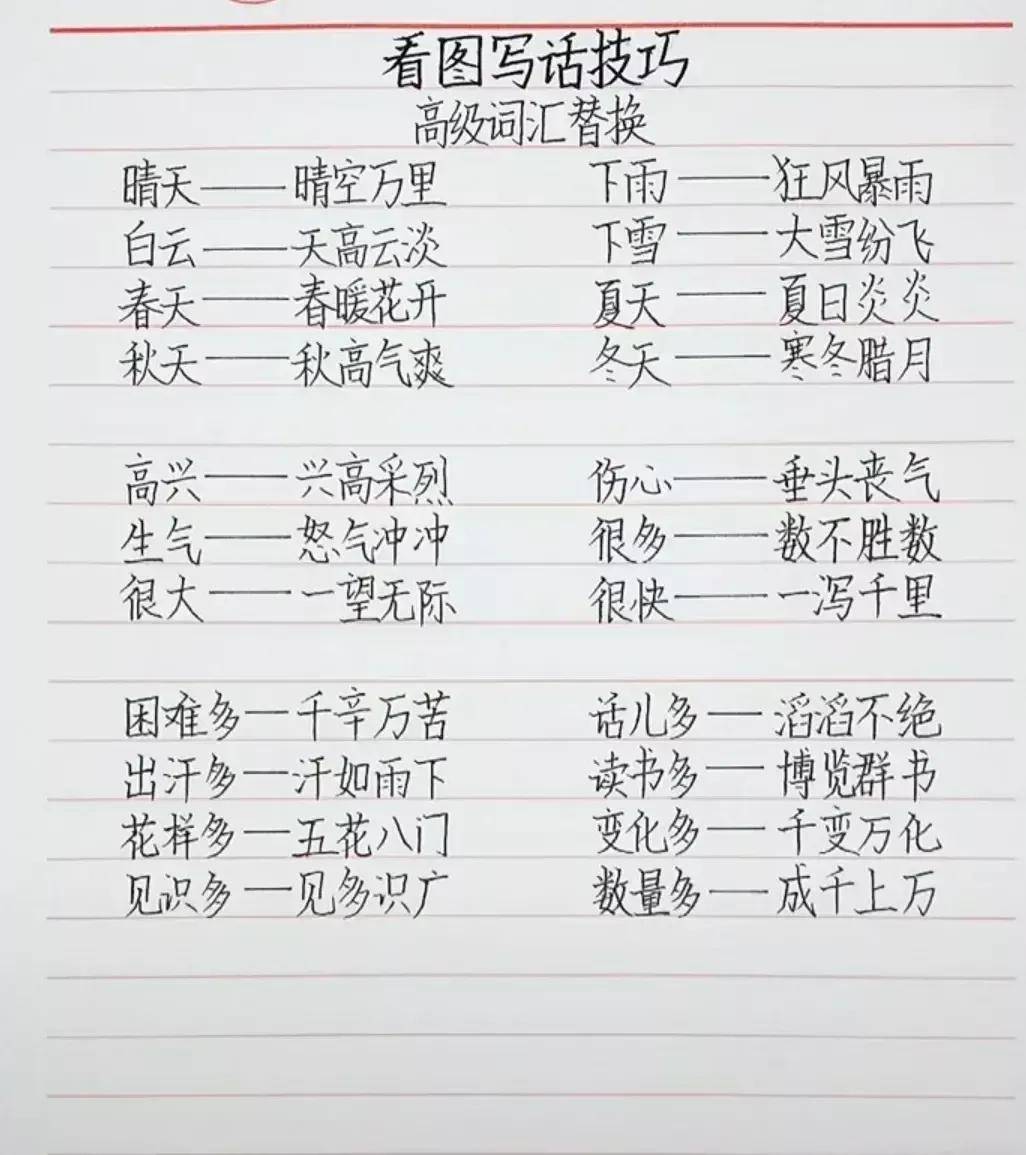 看图写话技巧
高级词汇替换
晴天——晴空万里 下雨——狂风暴雨
白云——天高云淡 下雪——大雪纷飞
春天——春暖花开 夏天——夏日炎炎
秋天——秋高气爽 冬天——寒冬腊月
高兴——兴高采烈 伤心——垂头丧气
生气——怒气冲冲 很多——数不胜数
很大——一望无际 很快——一泻千里
困难多—千辛万苦 话儿多—滔滔不绝
出汗多—汗如雨下 读书多—博览群书
花样多—五花八门 变化多—千变万化
见识多—见多识广 数量多—成千上万